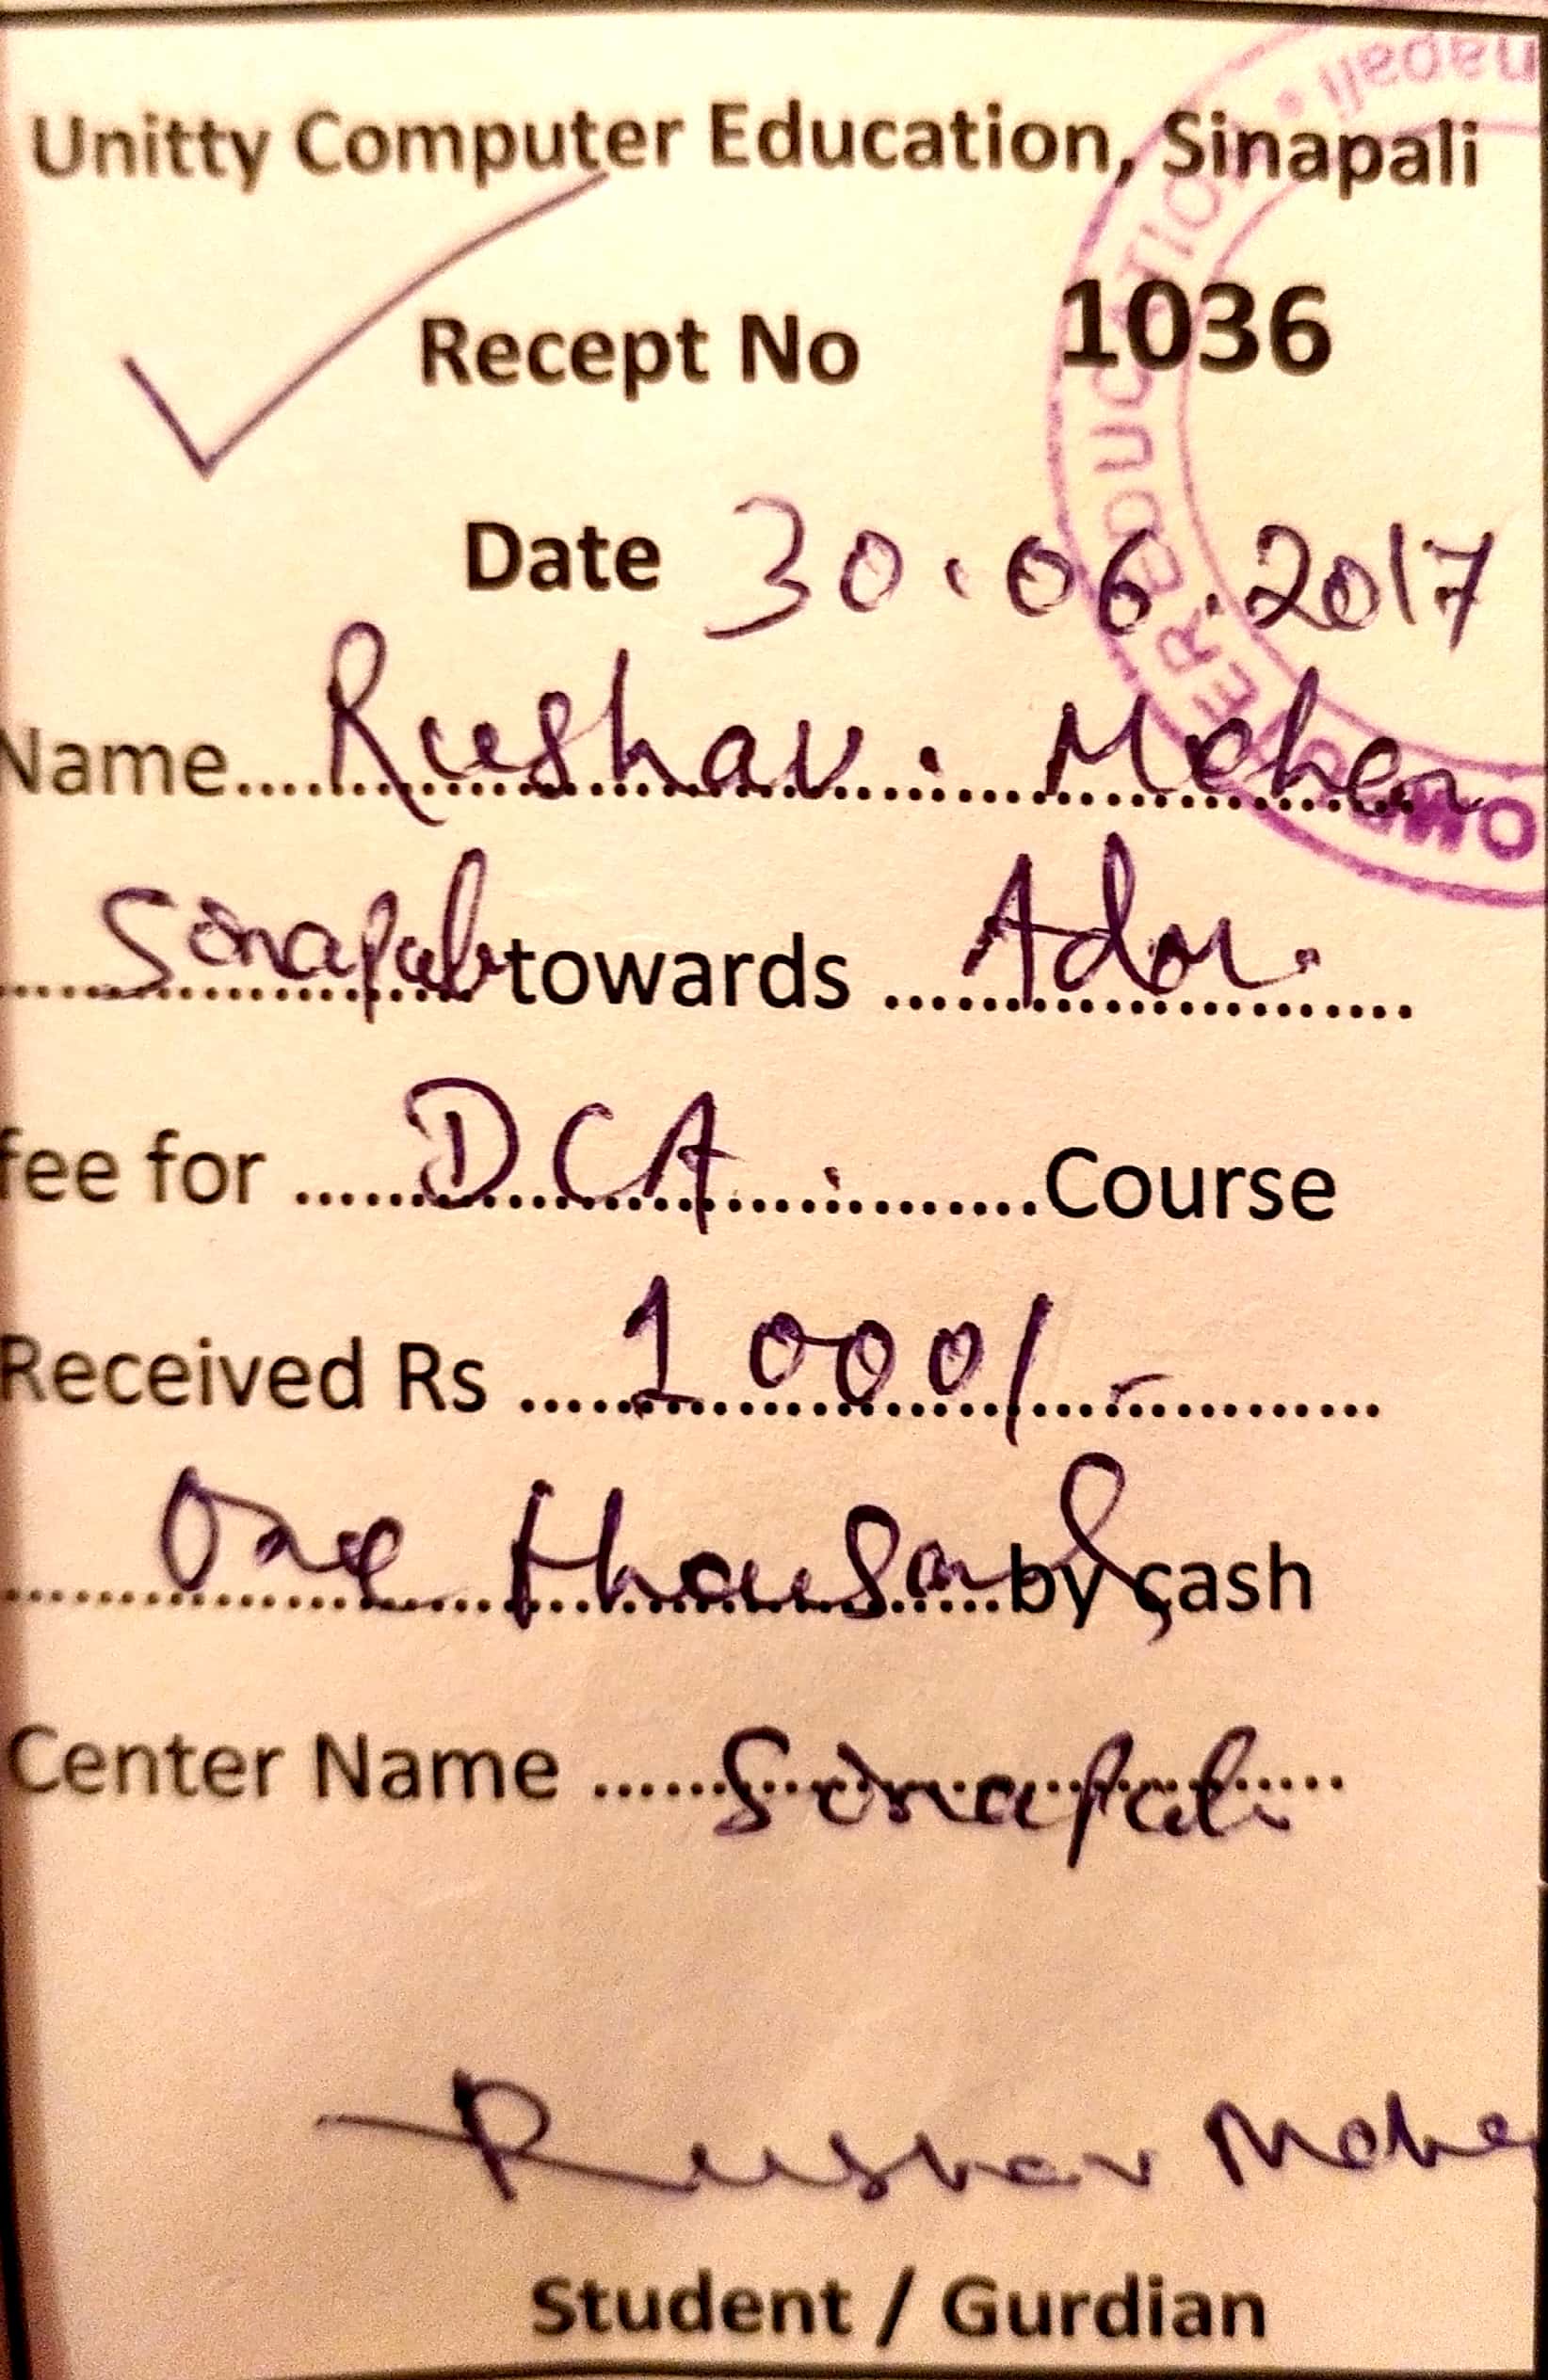 Unitty Computer Education, Sinapali
Recept No 1036
Date 30.06.2017
Name.... Rushav. Meher
Sinapali towards .... Adm.
fee for .... DCA .... Course
Received Rs .... 1000/-
One thousand by cash
Center Name .... Sinapali
Rushav Mehe
Student / Gurdian
napali
ER EDUCATION
OMP